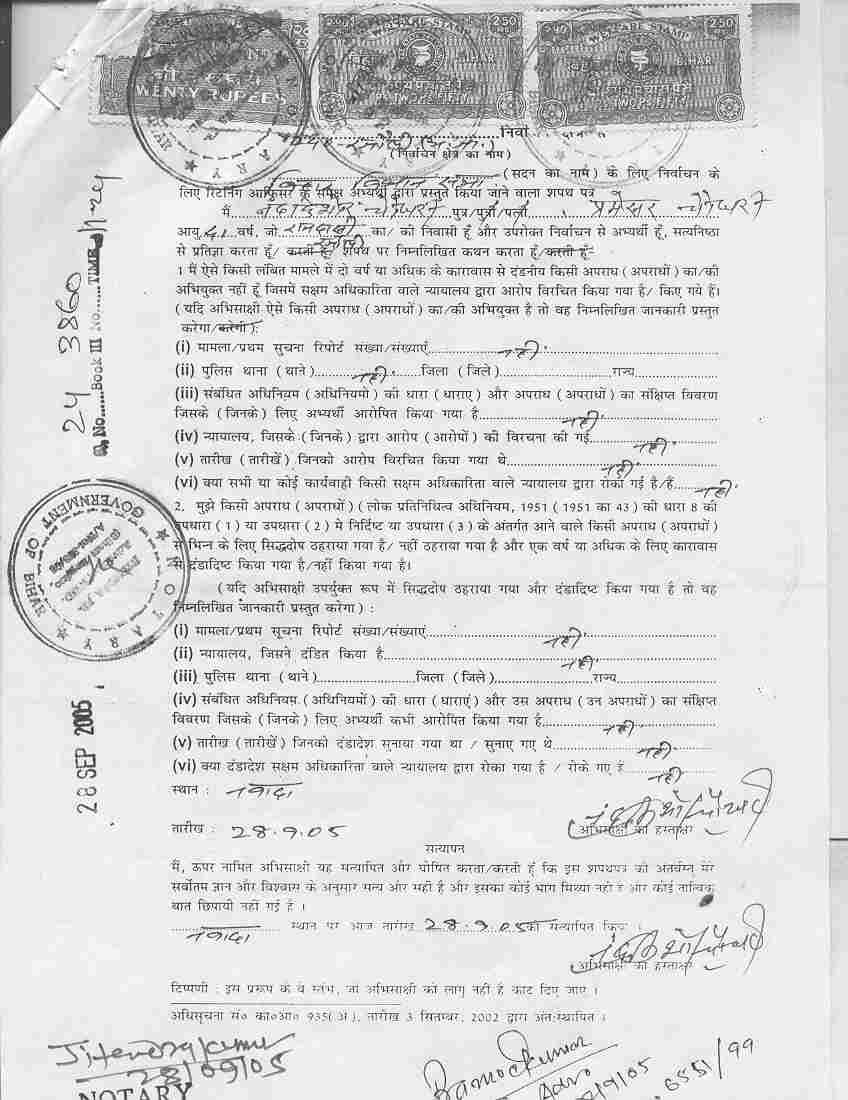 WELFARE STAMP
BIHAR
2.50
WENTY RUPEES
RS.TWO PS.FIFTY
WELFARE STAMP
BIHAR
2.50
RS.TWO PS.FIFTY
(निर्वाचन क्षेत्र का नाम)
(सदन का नाम) के लिए निर्वाचन के
लिए रिटर्निंग आफिसर के समक्ष अभ्यर्थी द्वारा प्रस्तुत किया जाने वाला शपथ पत्र
मैं पुत्र/पुत्री/पत्नी
आयु 41 वर्ष, जो का/ की निवासी हूँ और उपरोक्त निर्वाचन से अभ्यर्थी हूँ, सत्यनिष्ठा
से प्रतिज्ञा करता हूँ/ करती हूँ/ शपथ पर निम्नलिखित कथन करता हूँ/करती हूँ:-
1 मैं ऐसे किसी लंबित मामले में दो वर्ष या अधिक के कारावास से दंडनीय किसी अपराध (अपराधों) का/की
अभियुक्त नहीं हूँ जिसमें सक्षम अधिकारिता वाले न्यायालय द्वारा आरोप विरचित किया गया है/ किए गये हैं।
(यदि अभिसाक्षी ऐसे किसी अपराध (अपराधों) का/की अभियुक्त है तो वह निम्नलिखित जानकारी प्रस्तुत
करेगा/करेगी):
(i) मामला/प्रथम सुचना रिपोर्ट संख्या/संख्याएं नहीं
(ii) पुलिस थाना (थाने) नहीं जिला (जिले) राज्य
(iii) संबंधित अधिनियम (अधिनियमो) की धारा (धाराए) और अपराध (अपराधों) का संक्षिप्त विवरण
जिसके (जिनके) लिए अभ्यर्थी आरोपित किया गया है नहीं
(iv) न्यायालय, जिसके (जिनके) द्वारा आरोप (आरोपों) की विरचना की गई नहीं
(v) तारीख (तारीखें) जिनको आरोप विरचित किया गया थे नहीं
(vi) क्या सभी या कोई कार्यवाही किसी सक्षम अधिकारिता वाले न्यायालय द्वारा रोकी गई है/हैं नहीं
2. मुझे किसी अपराध (अपराधों) (लोक प्रतिनिधित्व अधिनियम, 1951 (1951 का 43) की धारा 8 की
उपधारा (1) या उपधारा (2) मे निर्दिष्ट या उपधारा (3) के अंतर्गत आने वाले किसी अपराध (अपराधों)
से भिन्न के लिए सिद्धदोष ठहराया गया है/ नहीं ठहराया गया है और एक वर्ष या अधिक के लिए कारावास
से दंडादिष्ट किया गया है/नहीं किया गया है।
(यदि अभिसाक्षी उपर्युक्त रूप में सिद्धदोष ठहराया गया और दंडादिष्ट किया गया है तो वह
निम्नलिखित जानकारी प्रस्तुत करेगा) :
(i) मामला/प्रथम सूचना रिपोर्ट संख्या/संख्याएं नहीं
(ii) न्यायालय, जिसने दंडित किया है नहीं
(iii) पुलिस थाना (थाने) जिला (जिले) राज्य
(iv) संबंधित अधिनियम (अधिनियमों) की धारा (धाराएं) और उस अपराध (उन अपराधों) का संक्षिप्त
विवरण जिसके (जिनके) लिए अभ्यर्थी कभी आरोपित किया गया है नहीं
(v) तारीख (तारीखें) जिनको दंडादेश सुनाया गया था / सुनाए गए थे नहीं
(vi) क्या दंडादेश सक्षम अधिकारिता वाले न्यायालय द्वारा रोका गया है / रोके गए हैं नहीं
स्थान : नवादा
तारीख : 28.9.05
अभिसाक्षी का हस्ताक्षर
सत्यापन
मैं, ऊपर नामित अभिसाक्षी यह सत्यापित और घोषित करता/करती हूँ कि इस शपथपत्र की अंतर्वस्तु मेरे
सर्वोतम ज्ञान और विश्वास के अनुसार सत्य और सही है और इसका कोई भाग मिथ्या नहीं है और कोई तात्विक
बात छिपायी नहीं गई है ।
नवादा स्थान पर आज तारीख 28.9.05 को सत्यापित किया ।
अभिसाक्षी का हस्ताक्षर
टिप्पणी : इस प्ररूप के वे स्तंभ, जो अभिसाक्षी को लागू नहीं है काट दिए जाए ।
अधिसूचना सं० का०आ० 935(अ), तारीख 3 सितम्बर, 2002 द्वारा अंतःस्थापित ।
Jitendra Kumar
28/09/05
NOTARY
6551/99
24 3860
Book III No. TIME
NOTARY
GOVERNMENT OF BIHAR
28 SEP 2005